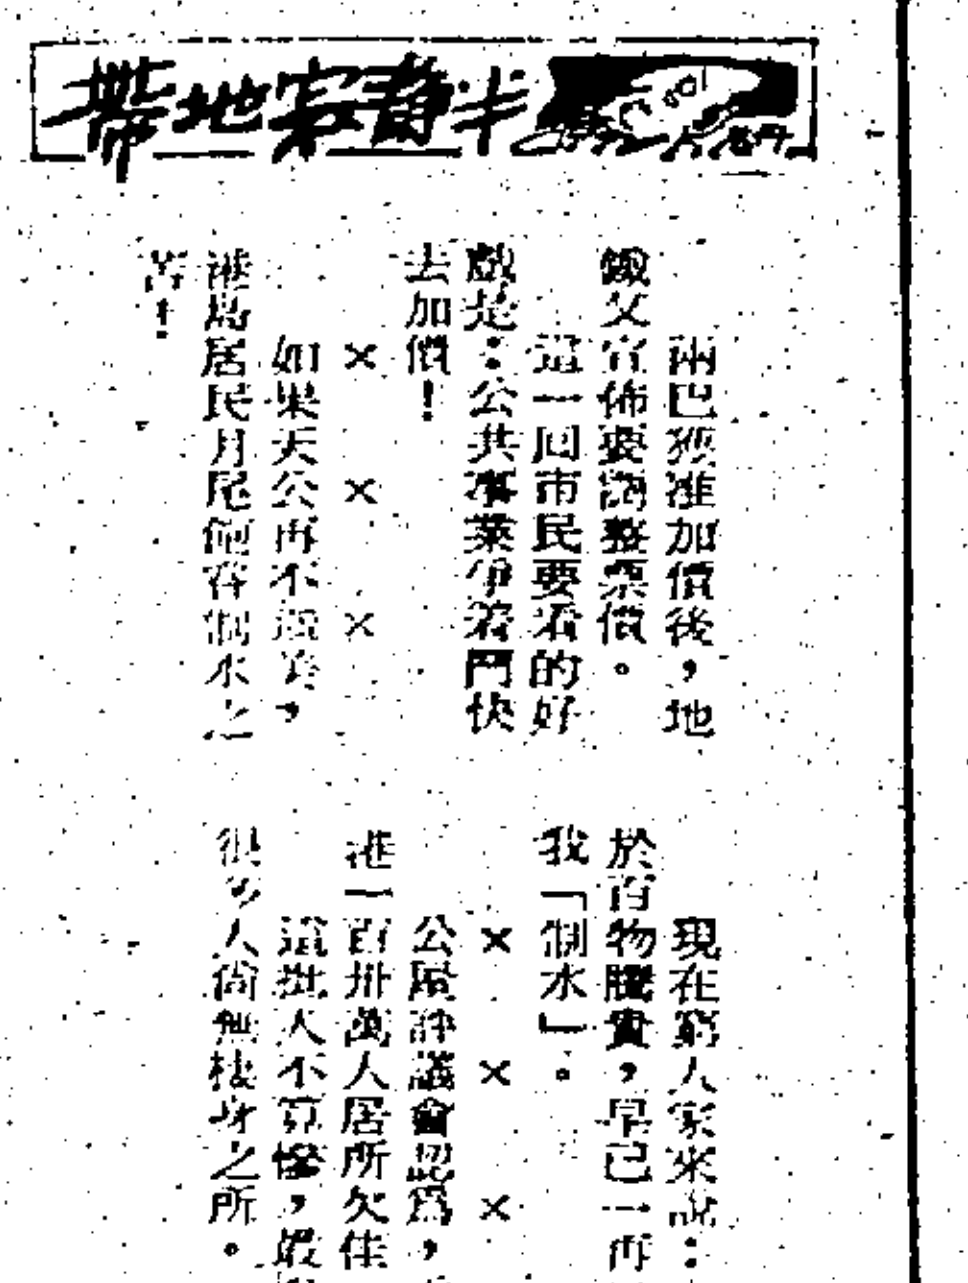 半靜寂地帶
兩巴獲准加價後，地
鐵又宣佈要調整票價。
這一回市民要看的好
戲是：公共事業爭着鬥快
去加價！
× × ×
如果天公再不造美，
港島居民月尾便吞制水之
苦！
現在窮人家來說：
於百物騰貴，早已一再
我「制水」。
× × ×
公屋評議會認爲，
港一百卅萬人居所欠佳
這批人不算慘，最
很多人尙無棲身之所。